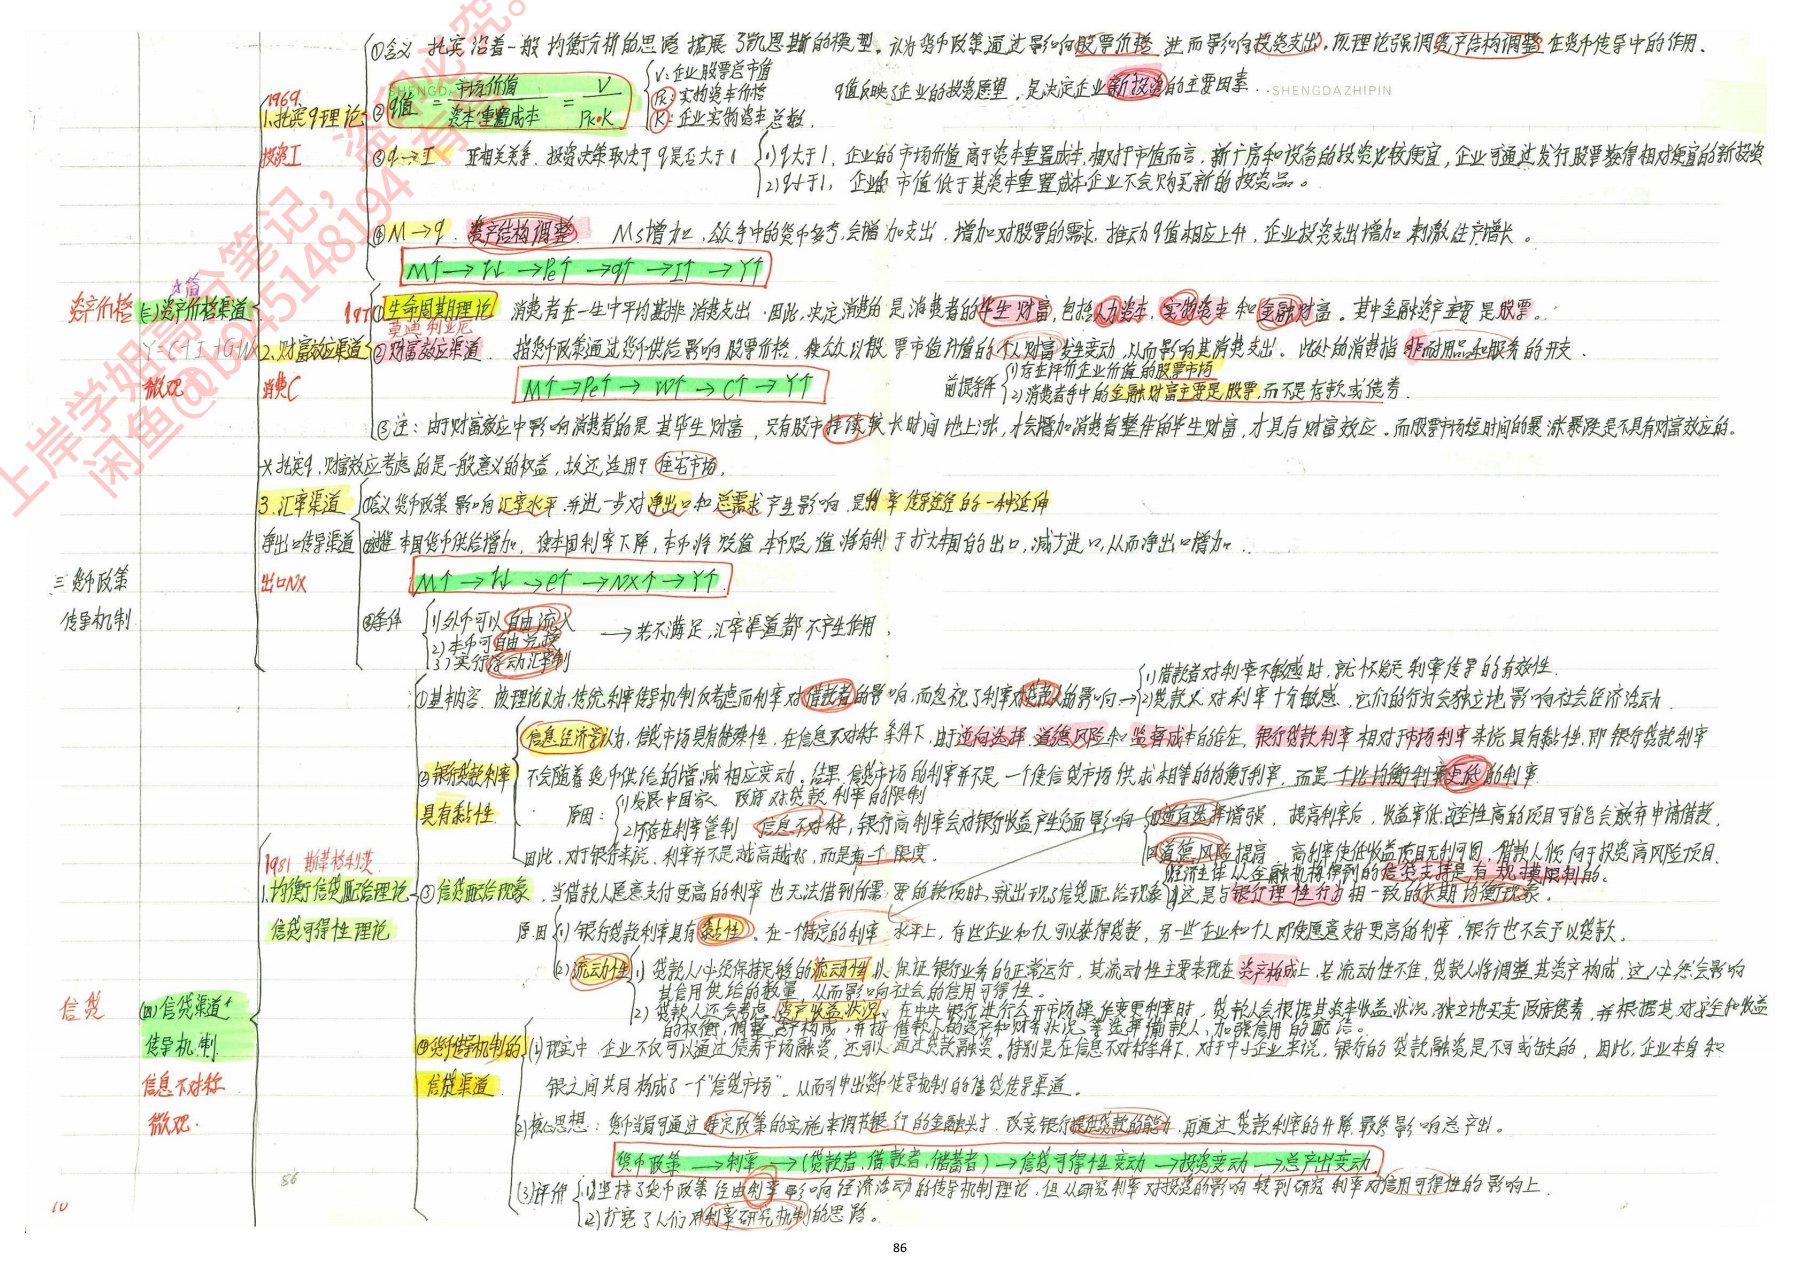 上岸学姐高分笔记，盗印必究。
闲鱼@b945148194有售
三 货币政策
传导机制
资产价格
(三)资产价格渠道
微观
1969
1.托宾q理论
投资I
①含义 托宾沿着一般均衡分析的思路扩展了凯恩斯的模型。认为货币政策通过影响股票价格进而影响投资支出。该理论强调资产结构调整在货币传导中的作用。
② q值 = 市场价值/资本重置成本 = V/(Pk·K)
V: 企业股票总市值
Pk: 实物资本价格
K: 企业实物资本总数.
q值反映了企业的投资愿望，是决定企业新投资的主要因素.
SHENGDAZHIPIN
③q→I 正相关关系. 投资决策取决于q是否大于1
(1)q大于1，企业的市场价值高于资本重置成本.相对于市值而言，新厂房和设备的投资比较便宜，企业可通过发行股票获得相对便宜的新投资
2)q小于1，企业市值低于其资本重置成本.企业不会购买新的投资品。
④M→q. 资产结构调整. Ms增加，公众手中的货币多了，会增加支出，增加对股票的需求，推动q值相应上升，企业投资支出增加 刺激生产增长。
M↑→r↓→Pe↑→q↑→I↑→Y↑
2.财富效应渠道
消费C
①生命周期理论 消费者在一生中平均安排消费支出.因此,决定消费的是消费者的毕生财富,包括人力资本,实物资本和金融财富。其中金融资产主要是股票。
莫迪利亚尼
②财富效应渠道. 指货币政策通过货币供给影响股票价格，使公众以股票市值计值的个人财富发生变动,从而影响其消费支出。此处的消费指非耐用品和服务的开支.
M↑→Pe↑→W↑→C↑→Y↑
前提条件
(1)存在评价企业价值的股票市场
(2)消费者手中的金融财富主要是股票,而不是存款或债券.
③注：由于财富效应中影响消费者的是其毕生财富，只有股市持续较长时间地上涨，才会增加消费者整体的毕生财富，才具有财富效应。而股票市场短时间的暴涨暴跌是不具有财富效应的。
※托宾q,财富效应考虑的是一般意义的权益，故还适用于住宅市场.
3.汇率渠道
净出口传导渠道
出口NX
①含义 货币政策影响汇率水平,并进一步对净出口和总需求产生影响.是利率传导途径的一种延伸
本国货币供给增加，使本国利率下降,本币将贬值.本币贬值将有利于扩大本国的出口,减少进口,从而净出口增加.
M↑→r↓→e↑→NX↑→Y↑
③条件
(1)外币可以自由流入
2)本币可自由兑换
3)实行浮动汇率制
→若不满足,汇率渠道都不产生作用.
信贷
(四)信贷渠道
传导机制
信息不对称
微观.
1981 斯蒂格利茨
1.均衡信贷配给理论
信贷可得性理论
①基本内容. 该理论认为,传统利率传导机制仅考虑利率对借款者的影响,而忽视了利率对贷款人的影响→
(1)借款者对利率不敏感时,就怀疑利率传导的有效性.
(2)贷款人对利率十分敏感，它们的行为会独立地影响社会经济活动.
②银行贷款利率
具有黏性.
信息经济学认为,信贷市场具有特殊性，在信息不对称条件下,由于逆向选择.道德风险和监督成本的存在，银行贷款利率相对于市场利率来说具有黏性,即银行贷款利率
不会随着货币供给的增减相应变动。结果,信贷市场的利率并不是一个使信贷市场供求相等的均衡利率，而是一个比均衡利率更低的利率.
原因：
(1)发展中国家 政府对贷款利率的限制
2)不存在利率管制 信息不对称,银行高利率会对银行收益产生负面影响
逆向选择增强. 提高利率后，收益率低安全性高的项目可能会放弃申请借款.
道德风险提高. 高利率使低收益项目无利可图,借款人倾向于投资高风险项目.
因此,对于银行来说，利率并不是越高越好,而是有一个限度.
③信贷配给现象. 当借款人愿意支付更高的利率也无法借到所需要的款项时,就出现了信贷配给现象
经济主体从金融机构得到的信贷支持是有规模限制的.
这是与银行理性行为相一致的长期均衡现象.
原因
(1)银行贷款利率具有黏性。在一个特定的利率水平上,有些企业和个人可以获得贷款，另一些企业和个人即使愿意支付更高的利率,银行也不会予以贷款.
(2)流动性
(1)贷款人必须保持足够的流动性以保证银行业务的正常运行，其流动性主要表现在资产构成上,若流动性不佳,贷款人将调整其资产构成，这必然会影响
其信用供给的数量，从而影响社会的信用可得性。
2)贷款人还会考虑资产收益状况，在中央银行进行公开市场操作变更利率时，贷款人会根据其资本收益状况,独立地买卖政府债券，并根据其对安全和收益
的权衡,调整资产构成，并按借款人的资产和财务状况等选择借款人,加强信用的配给。
④货币传导机制的
信贷渠道
(1)现实中.企业不仅可以通过债券市场融资，还可以通过贷款融资。特别是在信息不对称条件下,对于中小企业来说，银行的贷款融资是不可或缺的，因此,企业本身和
银之间共同构成了一个"信贷市场"，从而引申出货币传导机制的信贷传导渠道。
2)核心思想：货币当局可通过特定政策的实施来调节银行的金融头寸，改变银行提供贷款的能力.再通过贷款利率的升降.最终影响总产出。
货币政策→利率→(贷款者,借款者,储蓄者)→信贷可得性变动→投资变动→总产出变动.
(3)评价
(1)坚持了货币政策经由利率影响经济活动的传导机制理论，但从研究利率对投资的影响转到研究利率对信用可得性的影响上.
2)扩宽了人们对利率研究机制的思路。
86
10
86